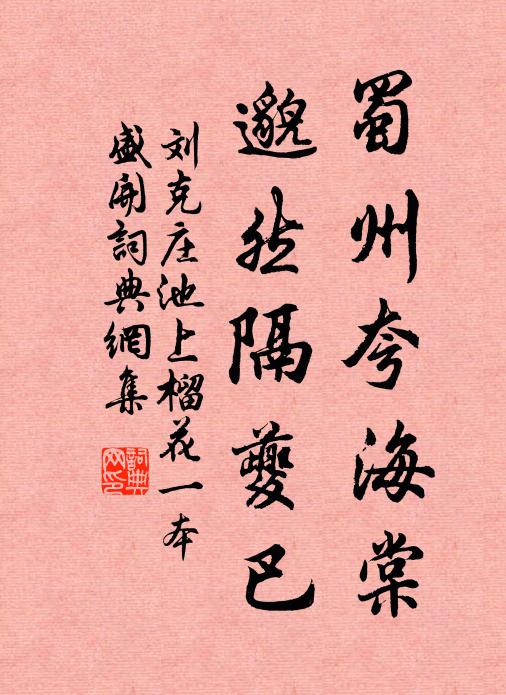 蜀州夸海棠
邈然隔夔巴
刘克庄池上榴花一本
盛开詞典網集
詞典
网印